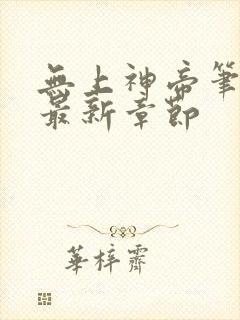 無上神帝筆
最新章節
華梓霽